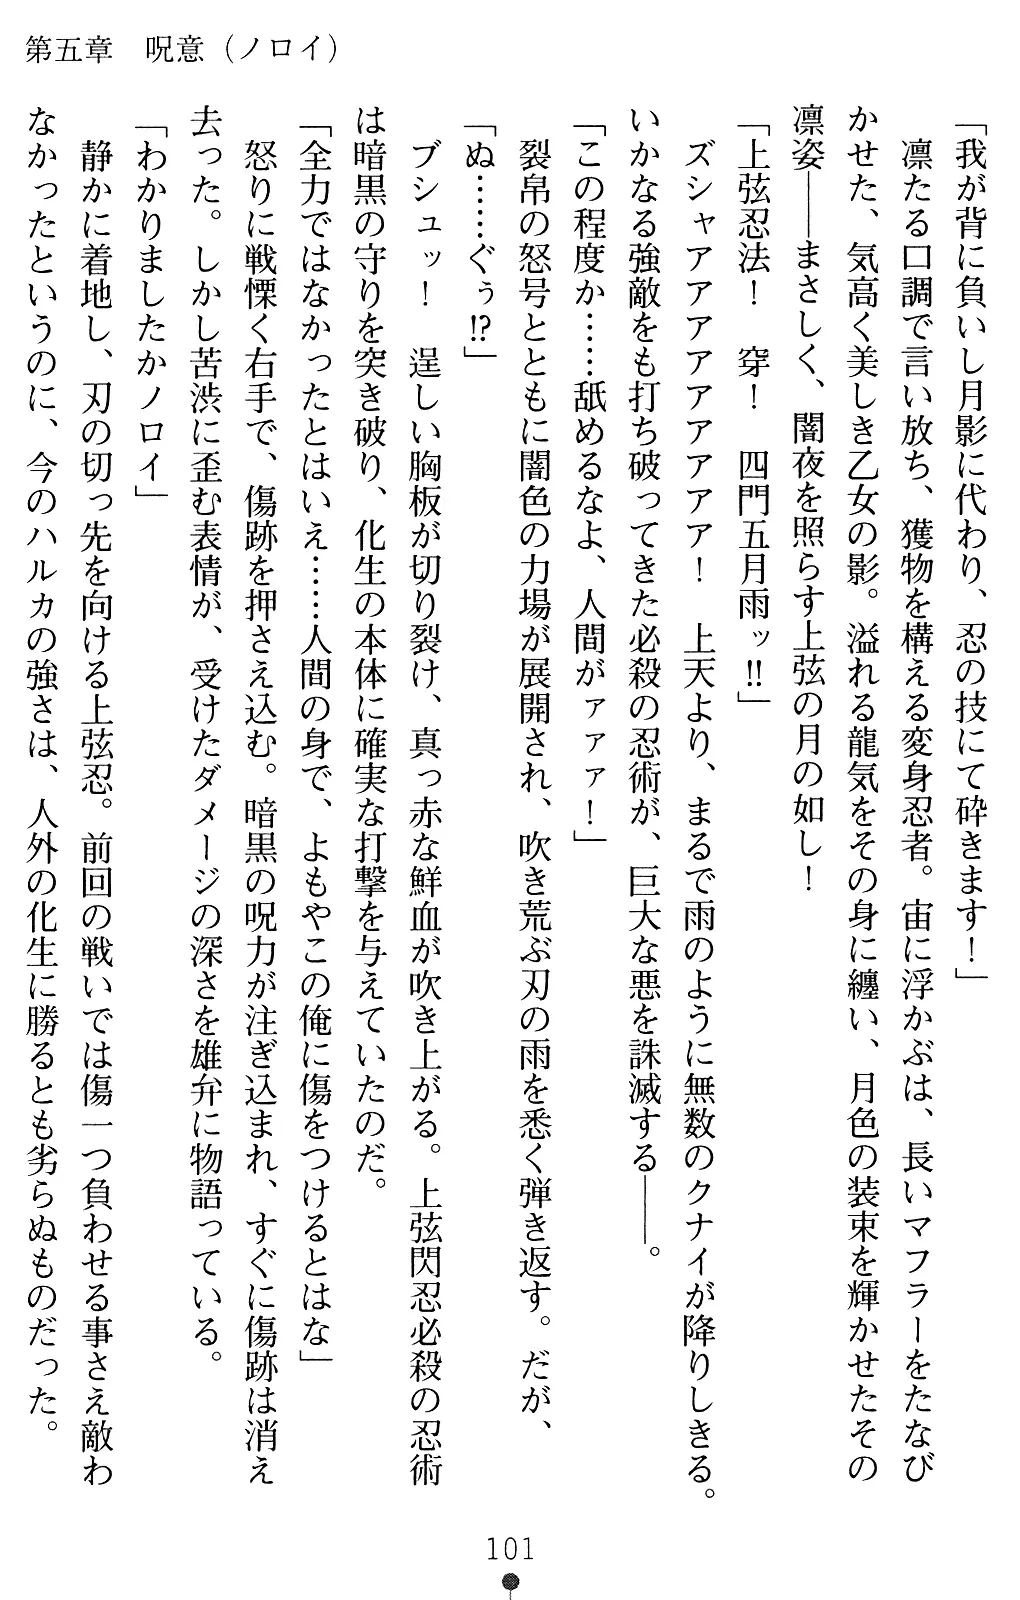 第五章　呪意（ノロイ）
「我が背に負いし月影に代わり、忍の技にて砕きます！」
　凛たる口調で言い放ち、獲物を構える変身忍者。宙に浮かぶは、長いマフラーをたなび
かせた、気高く美しき乙女の影。溢れる龍気をその身に纏い、月色の装束を輝かせたその
凛姿――まさしく、闇夜を照らす上弦の月の如し！
「上弦忍法！　穿！　四門五月雨ッ!!」
　ズシャアアアアアアアア！　上天より、まるで雨のように無数のクナイが降りしきる。
いかなる強敵をも打ち破ってきた必殺の忍術が、巨大な悪を誅滅する――。
「この程度か……舐めるなよ、人間がァァァ！」
　裂帛の怒号とともに闇色の力場が展開され、吹き荒ぶ刃の雨を悉く弾き返す。だが、
「ぬ……ぐぅ!?」
　ブシュッ！　逞しい胸板が切り裂け、真っ赤な鮮血が吹き上がる。上弦閃忍必殺の忍術
は暗黒の守りを突き破り、化生の本体に確実な打撃を与えていたのだ。
「全力ではなかったとはいえ……人間の身で、よもやこの俺に傷をつけるとはな」
　怒りに戦慄く右手で、傷跡を押さえ込む。暗黒の呪力が注ぎ込まれ、すぐに傷跡は消え
去った。しかし苦渋に歪む表情が、受けたダメージの深さを雄弁に物語っている。
「わかりましたかノロイ」
　静かに着地し、刃の切っ先を向ける上弦忍。前回の戦いでは傷一つ負わせる事さえ敵わ
なかったというのに、今のハルカの強さは、人外の化生に勝るとも劣らぬものだった。
101